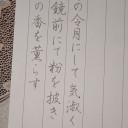 の令月にして気淑く
鏡前にて粉を披き
の香を薫らす